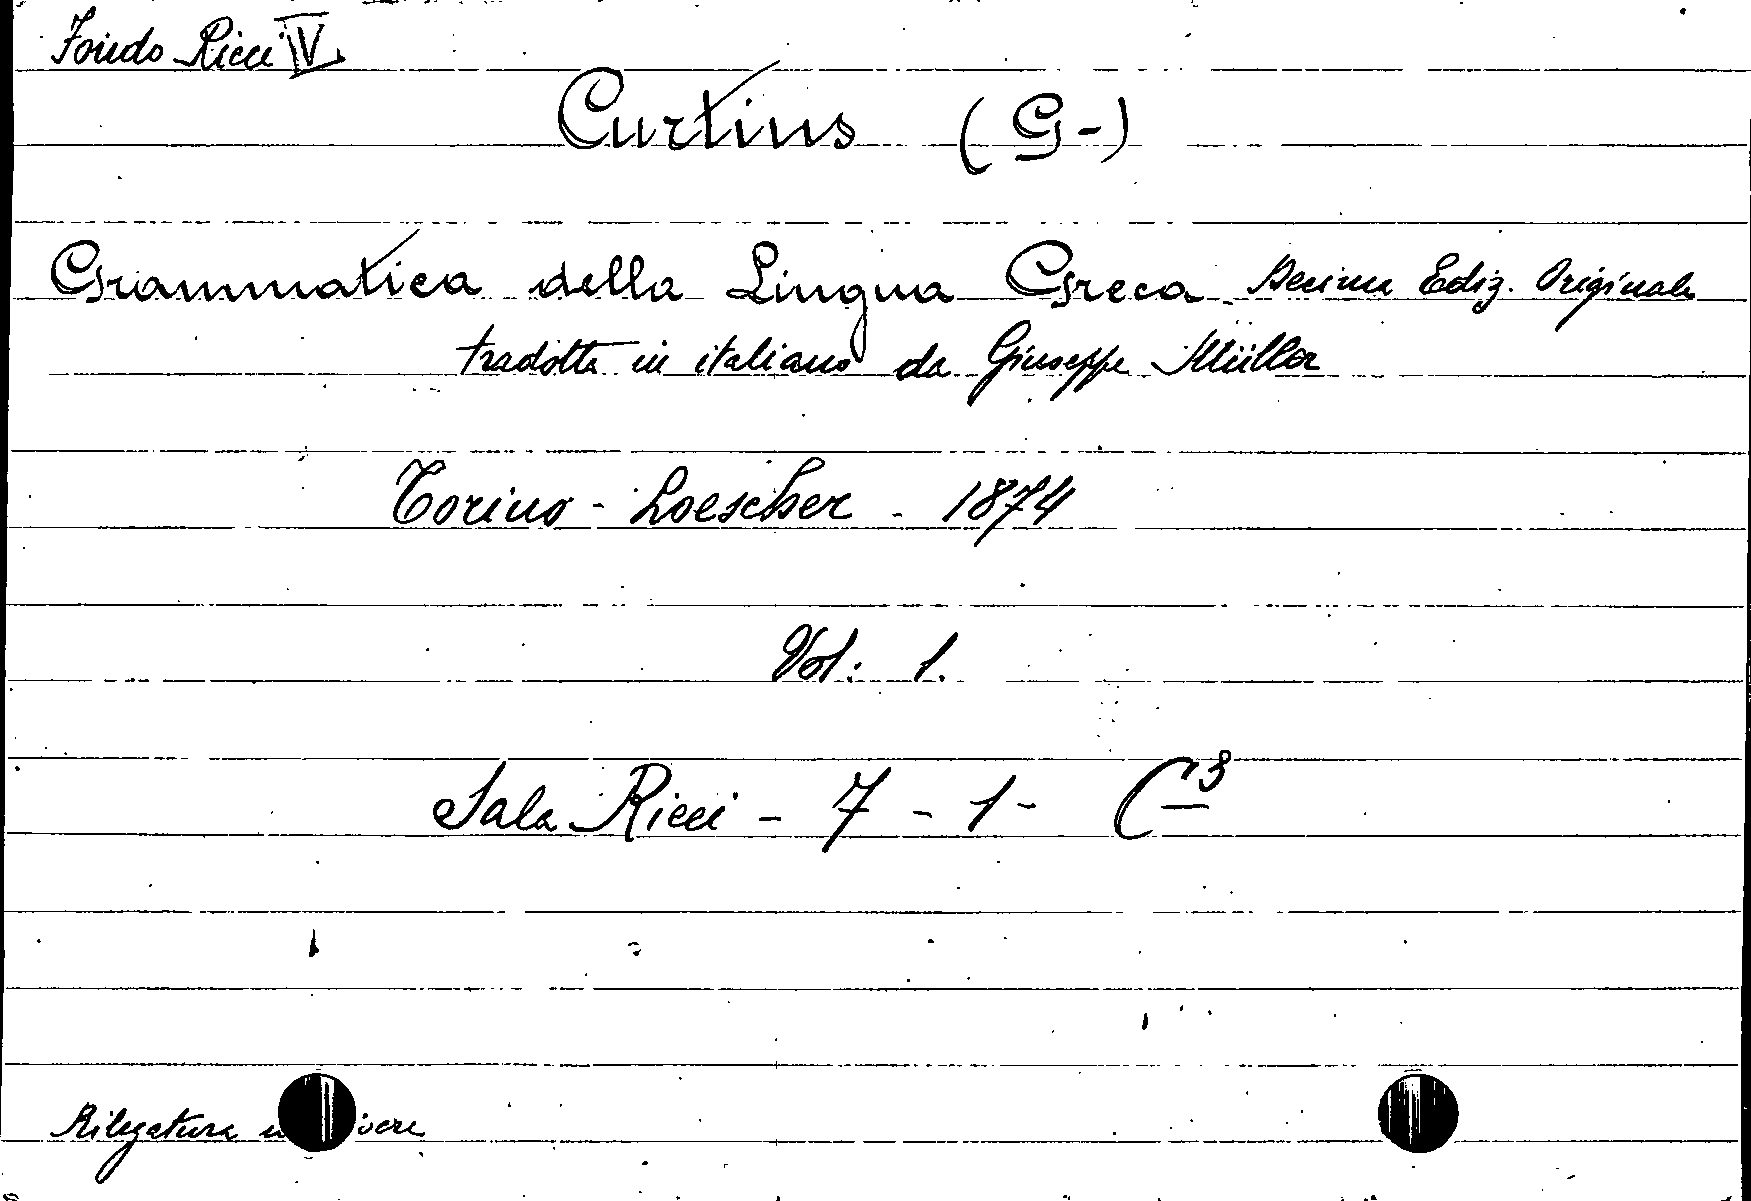 Fondo Ricci IV
Curtius (G-)
Grammatica della Lingua Greca Decima Ediz. Originale
tradotta in italiano da Giuseppe Müller
Torino - Loescher - 1874
Vol: 1.
Sala Ricci - 7 - 1 - C³
Rilegatura